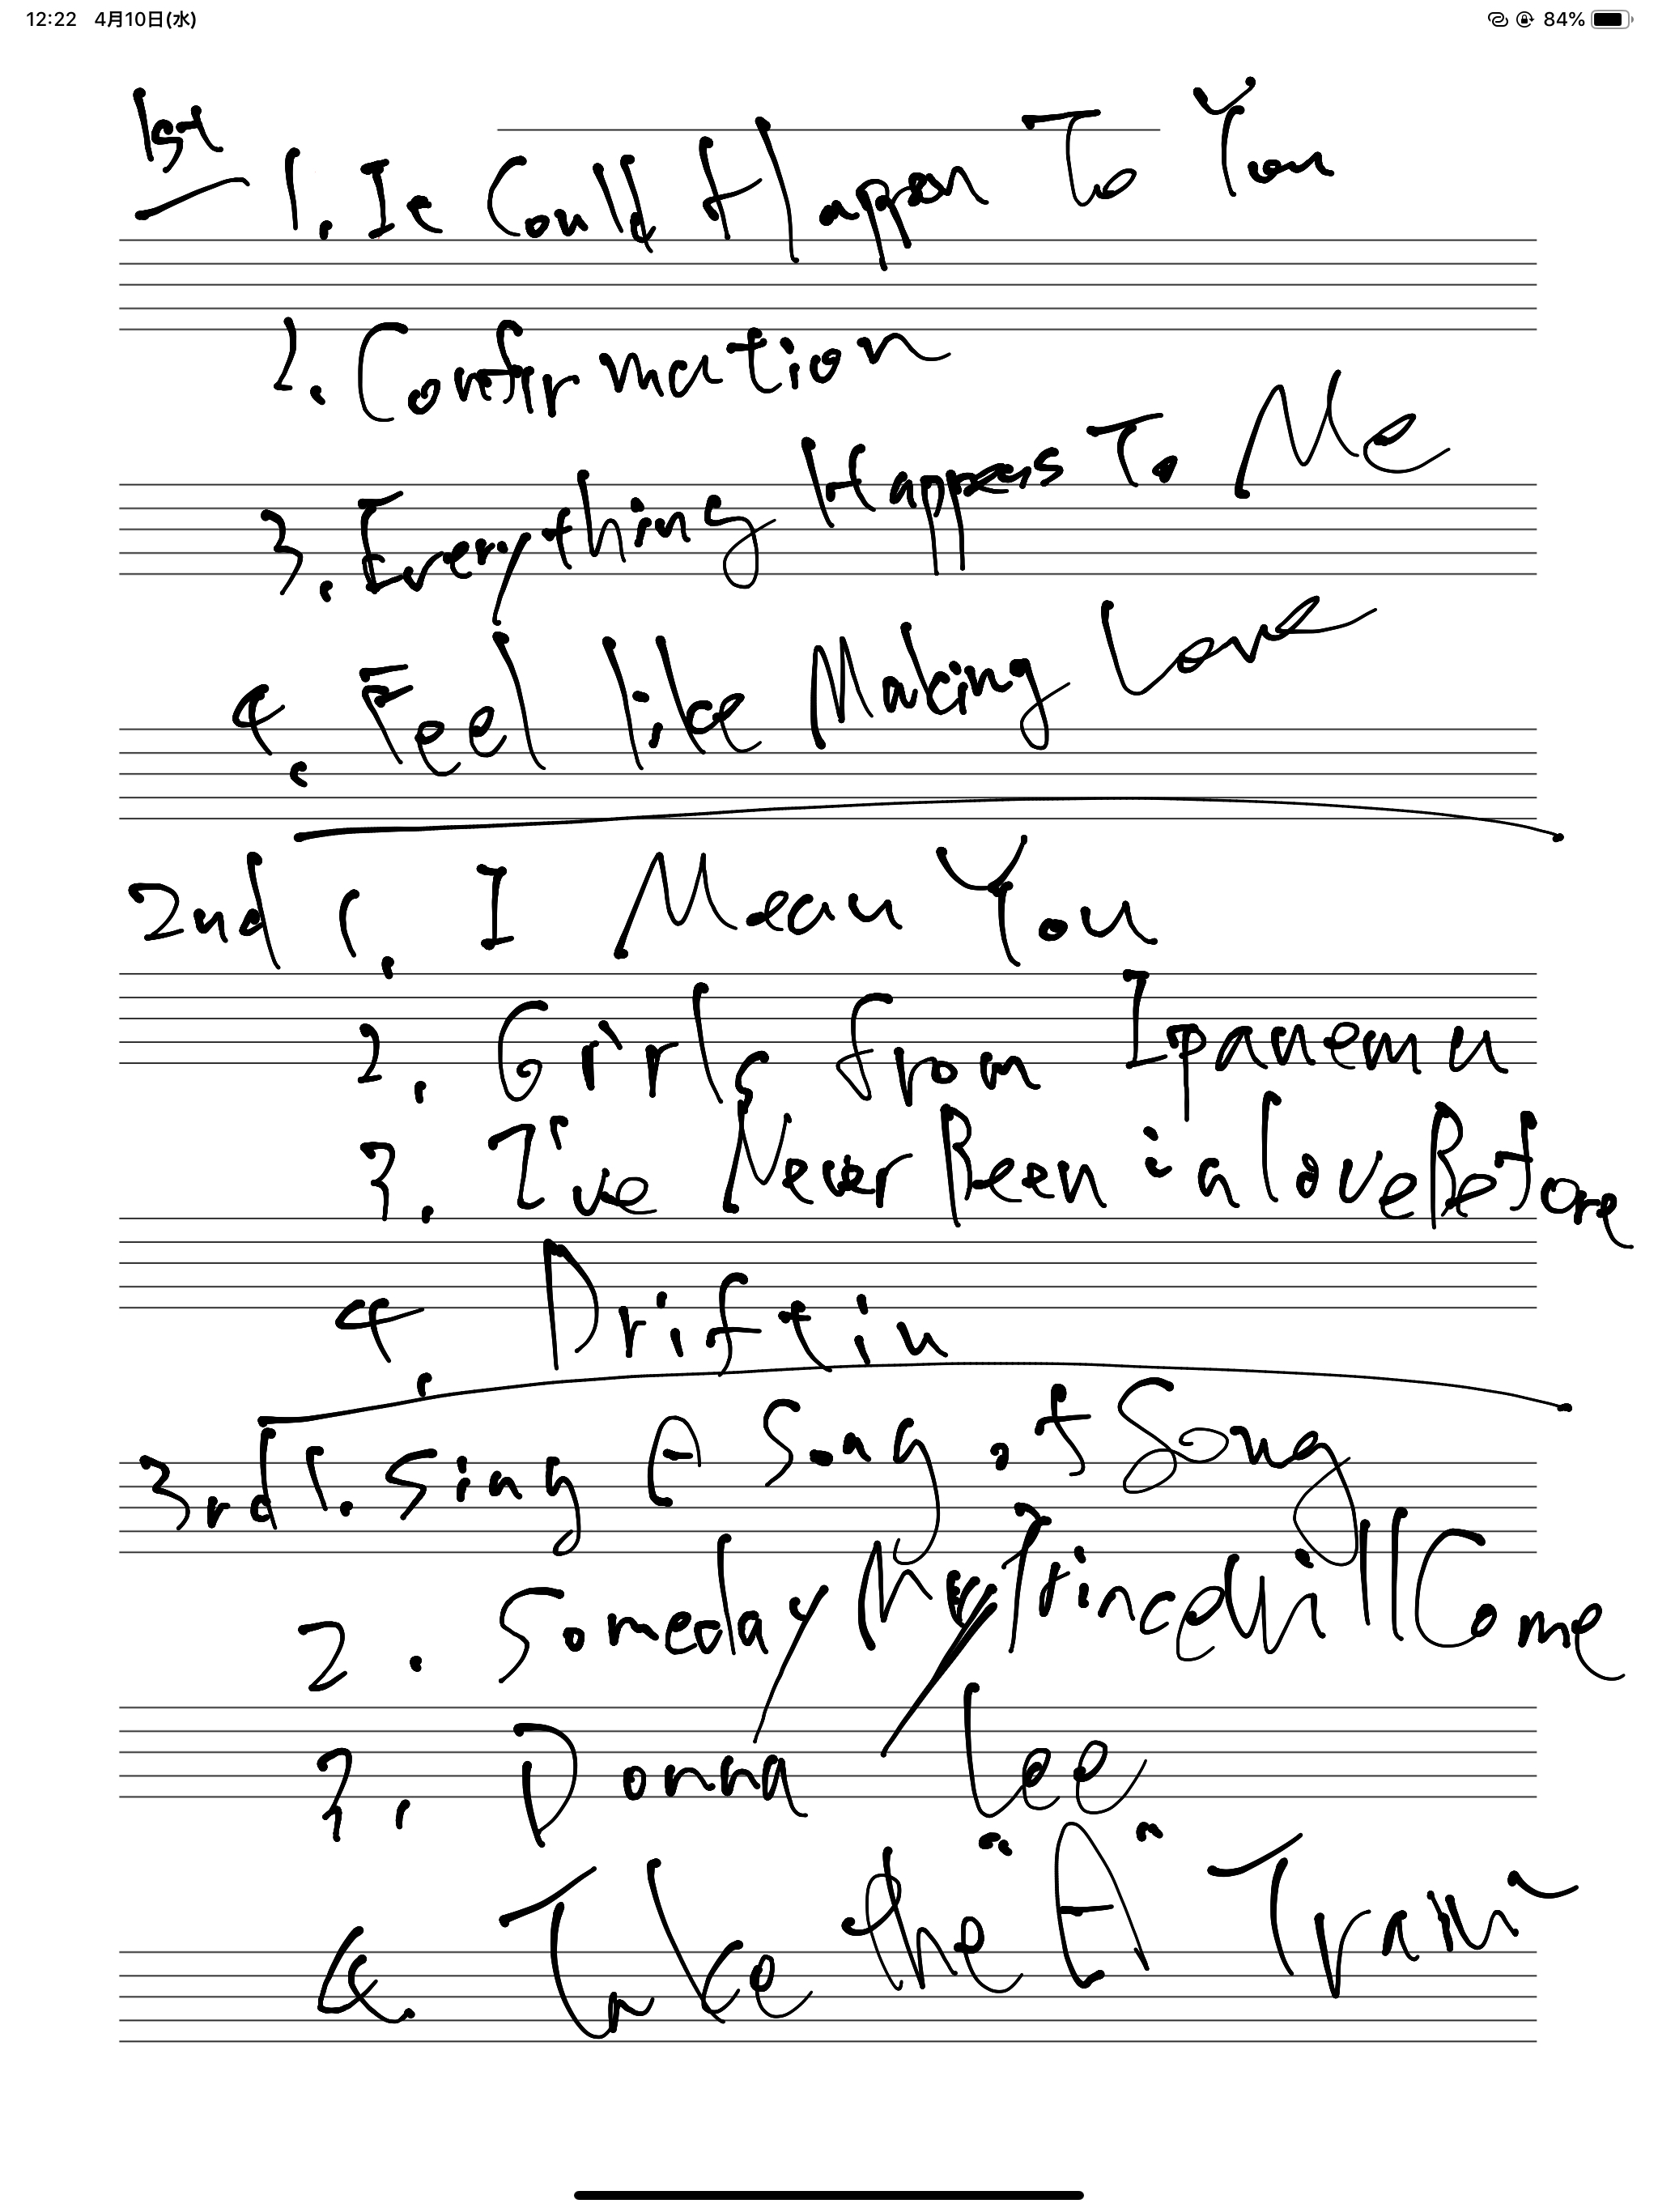 12:22 4月10日(水) 84%
1st
1. It Could Happen To You
2. Confirmation
3. Everything Happens To Me
4. Feel like Making Love
2nd 1. I Mean You
2. Girls from Ipanema
3. I've Never Been in a love Before
4. Driftin
3rd 1. Sing A Song of Song
2. Someday My Prince Will Come
3. Donna Lee
4. Take the "A" Train